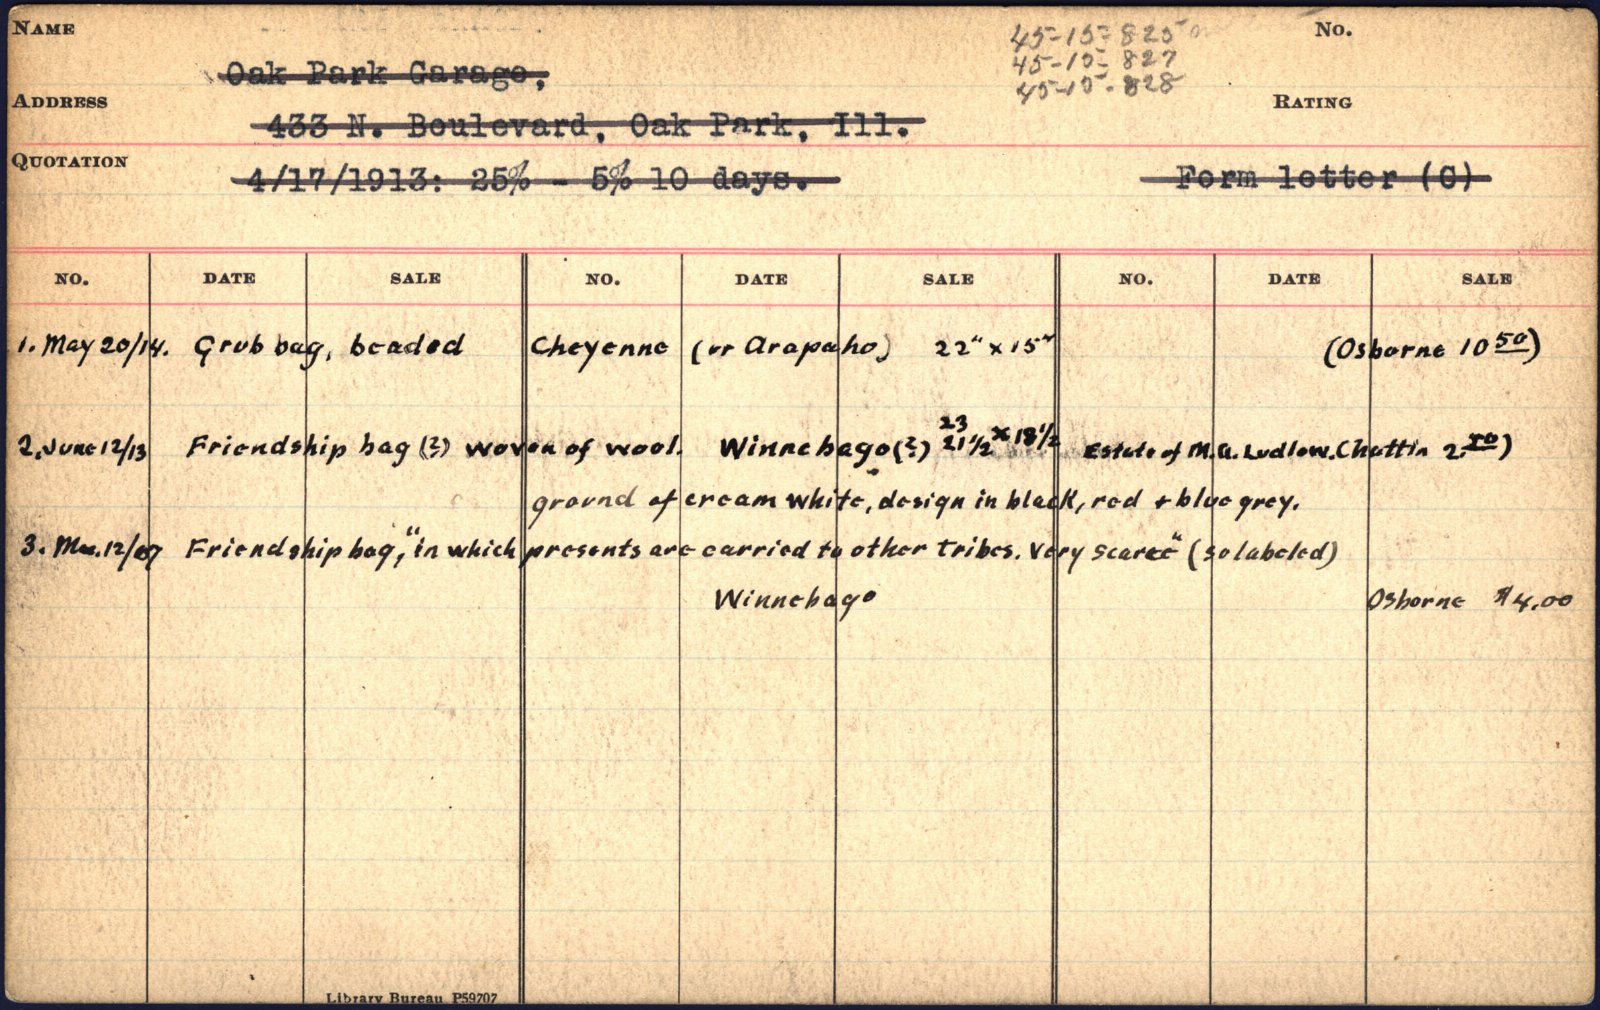 NAME
45-15-825
No.
Oak Park Garage,
45-15-827
45-15-828
ADDRESS
RATING
433 N. Boulevard, Oak Park, Ill.
QUOTATION
4/17/1913: 25% - 5% 10 days.
Form letter (C)
NO. DATE SALE NO. DATE SALE NO. DATE SALE
1. May 20/14. Grub bag, beaded Cheyenne (or Arapaho) 22" x 15" (Osborne 10 50)
2. June 12/13 Friendship bag (?) woven of wool. Winnebago (?) 23 21 1/2 x 18 1/2 Estate of M.A. Ludlow. Chattin 2.50)
ground of cream white, design in black, red + blue grey.
3. 12/07 Friendship bag, "in which presents are carried to other tribes. Very scarce" (so labeled)
Winnebago Osborne $4.00
Library Bureau P59707